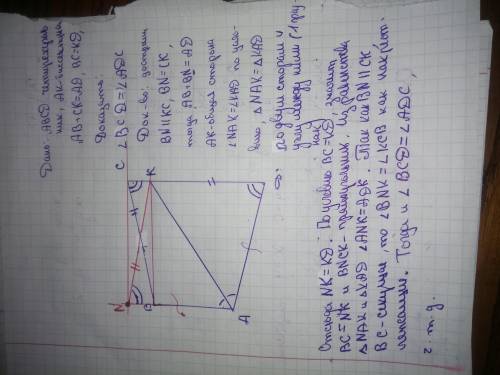 Дано: ABCD четырёхуголь
ник, AK-биссектриса
AB+CK=AD BC=KD,
Доказать
∠BCD=∠ADC
Док-во: достроим
BN∥KC, BN=CK,
тогда AB+BN=AD
AK-общая сторона
∠NAK=∠KAD по усло-
вию △NAK=△KAD
по двум сторонам и
углу между ними (1 приз
нак
Отсюда NK=KD. По условию BC=KD, значит
BC=NK и BNCK- прямоугольник. Из равенства
△NAK и △KAD ∠ANK=ADK. Так как BN∥CK
BC-секущие, то ∠BNK=∠KCB как накрест-
лежащие. Тогда и ∠BCD=∠ADC,
ч. т. д.
N
C
B
K
A
D